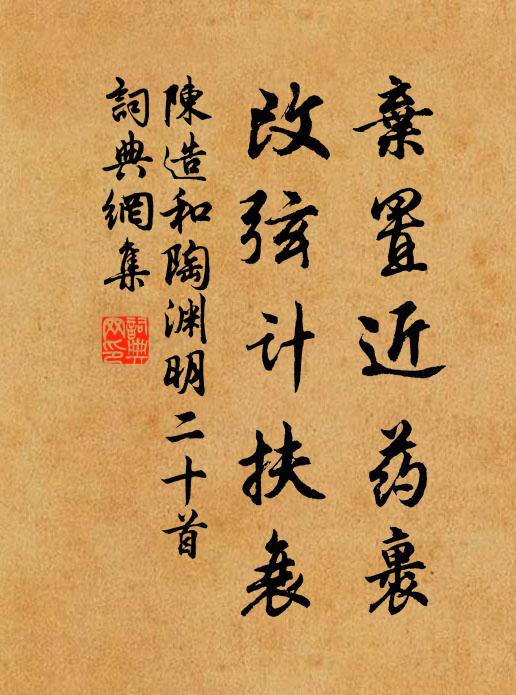 棄置近药裹
改弦计扶衰
陳造和陶渊明二十首
詞典網集
詞典網印